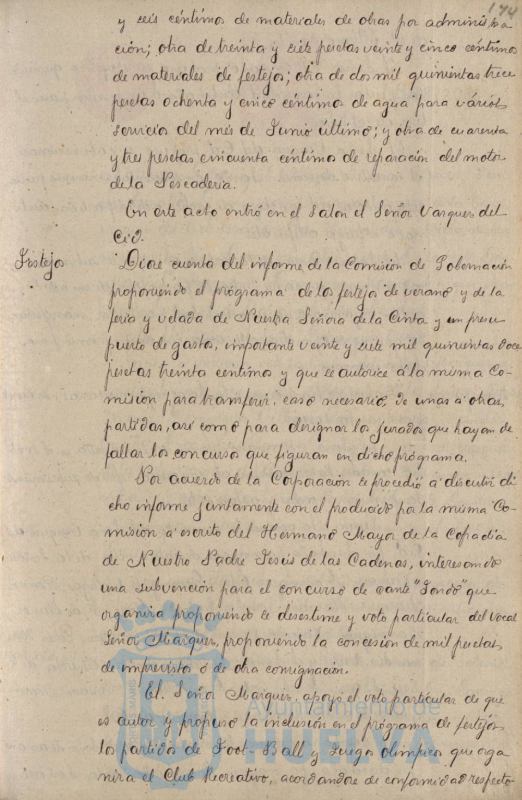 174
y seis céntimos de materiales de obras por administra
ción; otra de treinta y siete pesetas veinte y cinco céntimos
de materiales de festejos; otra de dos mil quinientas trece
pesetas ochenta y cinco céntimos de agua para varios
servicios del mes de Junio último; y otra de cuarenta
y tres pesetas cincuenta céntimos de reparación del motor
de la Pescadería.
En este acto entró en el Salon el Señor Vazquez del
Cid.
Festejos
Diose cuenta del informe de la Comisión de Gobernación
proponiendo el programa de los festejos de verano y de la
feria y velada de Nuestra Señora de la Cinta y un presu
puesto de gastos, importante veinte y siete mil quinientas doce
pesetas treinta centimos y que se autorice á la misma Co-
misión para transferir, caso necesario, de unas á otras
partidas, así como para designar los jurados que hayan de
fallar los concursos que figuran en dicho programa.
Por acuerdo de la Corporación se procedió a discutir di
cho informe juntamente con el producido por la misma Co-
misión a escrito del Hermano Mayor de la Cofradía
de Nuestro Padre Jesús de las Cadenas, interesando
una subvención para el concurso de cante "Jondo" que
organiza proponiendo se desestime y voto particular del Vocal
Señor Marquez, proponiendo la concesión de mil pesetas
de imprevistos ó de otra consignación.
El Señor Marquez, apoyó el voto particular de que
es autor y propuso la inclusión en el programa de festejos
los partidos de Foot-Ball y Juegos olímpicos que orga
niza el Club Recreativo, acordandose de conformidad respecto
Ayuntamiento de
HUELVA